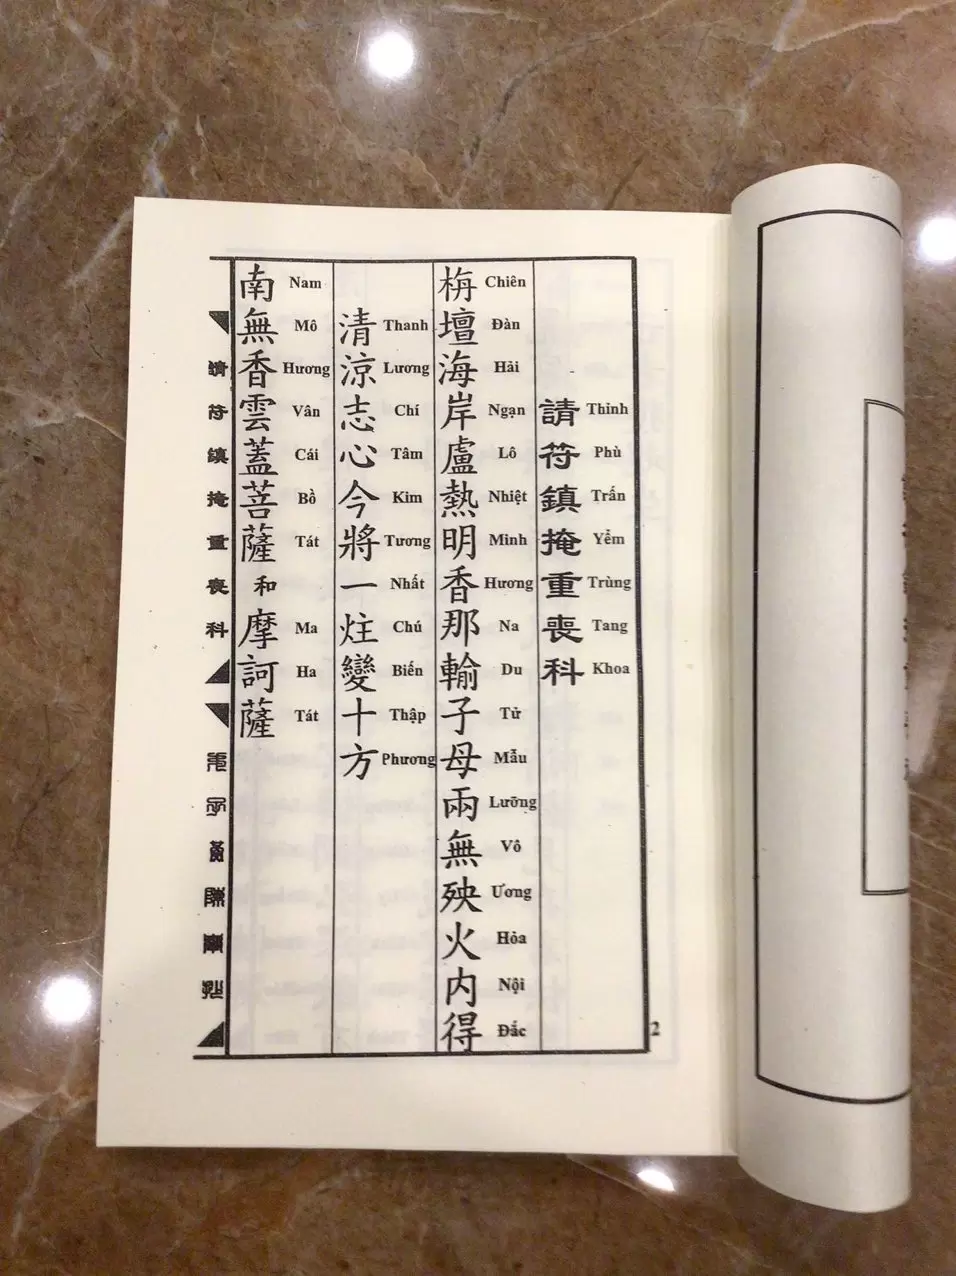 請符鎮掩重喪科
Thỉnh Phù Trấn Yểm Trùng Tang Khoa
栴壇海岸盧熱明香那輸子母兩無殃火內得
Chiên Đàn Hải Ngạn Lô Nhiệt Minh Hương Na Du Tử Mẫu Lưỡng Vô Ương Hỏa Nội Đắc
清涼志心今將一炷變十方
Thanh Lương Chí Tâm Kim Tương Nhất Chú Biến Thập Phương
南無香雲蓋菩薩和摩訶薩
Nam Mô Hương Vân Cái Bồ Tát Ma Ha Tát
請符鎮掩重喪科
2